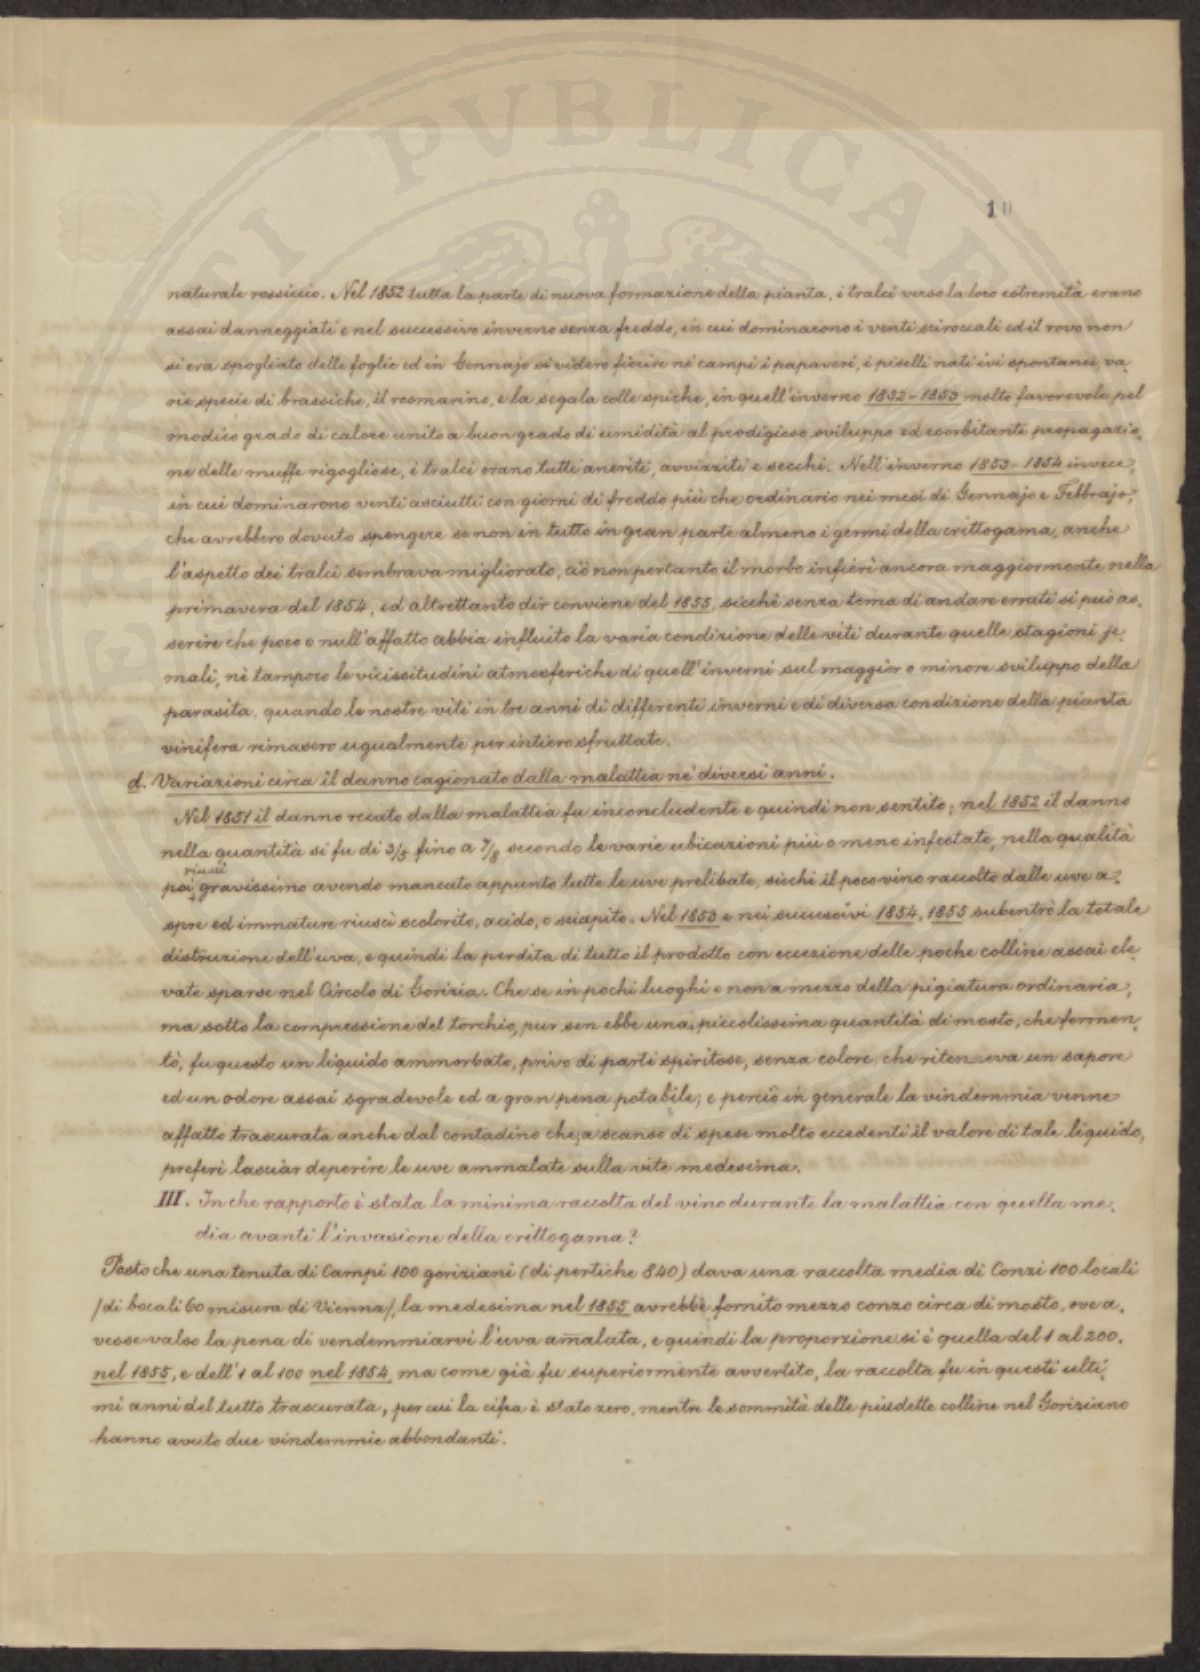 PERITI PVBLICAE
10
naturale rossiccio. Nel 1852 tutta la parte di nuova formazione della pianta, i tralci verso la loro estremità erano
assai danneggiati e nel successivo inverno senza freddo, in cui dominarono i venti sciroccali ed il rovo non
si era spogliato delle foglie ed in Gennajo si videro fiorire ne' campi i papaveri, i piselli nati ivi spontanei, va-
rie specie di brassiche, il rosmarino, e la segala colle spiche, in quell'inverno 1852-1853 molto favorevole pel
modico grado di calore unito a buon grado di umidità al prodigioso sviluppo ed esorbitante propagazio-
ne delle muffe rigogliose, i tralci erano tutti aneriti, avvizziti e secchi. Nell'inverno 1853-1854 invece,
in cui dominarono venti asciutti con giorni di freddo più che ordinario nei mesi di Gennajo e Febbrajo,
che avrebbero dovuto spengere se non in tutto in gran parte almeno i germi della crittogama, anche
l'aspetto dei tralci sembrava migliorato, ciò non pertanto il morbo infierì ancora maggiormente nella
primavera del 1854, ed altrettanto dir conviene del 1855, sicchè senza tema di andare errati si può as-
serire che poco o null'affatto abbia influito la varia condizione delle viti durante quelle stagioni je-
mali, nè tampoco le vicissitudini atmosferiche di quell'inverni sul maggior o minore sviluppo della
parasita, quando le nostre viti in tre anni di differenti inverni e di diversa condizione della pianta
vinifera rimasero ugualmente per intiero sfruttate.
d. Variazioni circa il danno cagionato dalla malattia ne' diversi anni.
Nel 1851 il danno recato dalla malattia fu inconcludente e quindi non sentito; nel 1852 il danno
nella quantità si fu di 3/5 fino a 7/8 secondo le varie ubicazioni più o meno infestate, nella qualità
riuscì
poi + gravissimo avendo mancato appunto tutte le uve prelibate, sicchè il poco vino raccolto dalle uve a-
spre ed immature riuscì scolorito, acido, o sciapito. Nel 1853 e nei successivi 1854, 1855 subentrò la totale
distruzione dell'uva, e quindi la perdita di tutto il prodotto con eccezione delle poche colline assai ele-
vate sparse nel Circolo di Gorizia. Che se in pochi luoghi e non a mezzo della pigiatura ordinaria,
ma sotto la compressione del torchio, pur sen ebbe una piccolissima quantità di mosto, che fermen-
tò, fu questo un liquido ammorbato, privo di parti spiritose, senza colore, che riteneva un sapore
ed un odore assai sgradevole ed a gran pena potabile; e perciò in generale la vindemmia venne
affatto trascurata anche dal contadino che, a scanso di spese molto eccedenti il valore di tale liquido,
preferì lasciar deperire le uve ammalate sulla vite medesima.
III. In che rapporto è stata la minima raccolta del vino durante la malattia con quella me-
dia avanti l'invasione della crittogama?
Posto che una tenuta di Campi 100 goriziani (di pertiche 840) dava una raccolta media di Conzi 100 locali
/di bocali 60 misura di Vienna/, la medesima nel 1855 avrebbe fornito mezzo conzo circa di mosto, ove a-
vesse valso la pena di vendemmiarvi l'uva am̅alata, e quindi la proporzione si è quella del 1 al 200.
nel 1855, e dell'1 al 100 nel 1854, ma come già fu superiormente avvertito, la raccolta fu in questi ulti-
mi anni del tutto trascurata, per cui la cifra è stato zero, mentre le sommità delle piudette colline nel Goriziano
hanno avuto due vindemmie abbondanti.